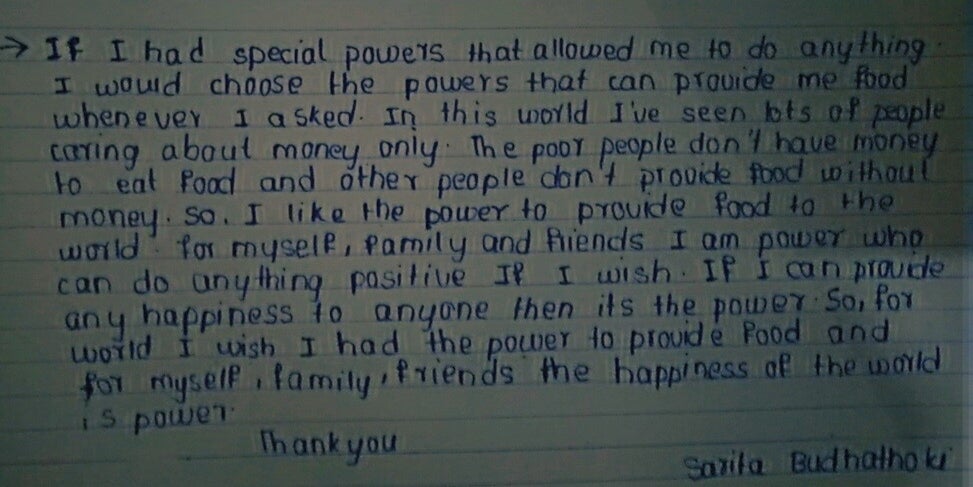 → If I had special powers that allowed me to do anything.
I would choose the powers that can provide me food
whenever I asked. In this world I've seen lots of people
caring about money only. The poor people don't have money
to eat food and other people don't provide food without
money. so. I like the power to provide food to the
world. for myself, family and friends I am power who
can do anything positive If I wish. If I can provide
any happiness to anyone then its the power. So, for
world I wish I had the power to provide food and
for myself, family, friends the happiness of the world
is power.
Thank you
Sarita Budhathoki